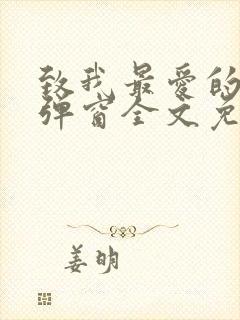 致我最爱的
弹窗全文免
姜明